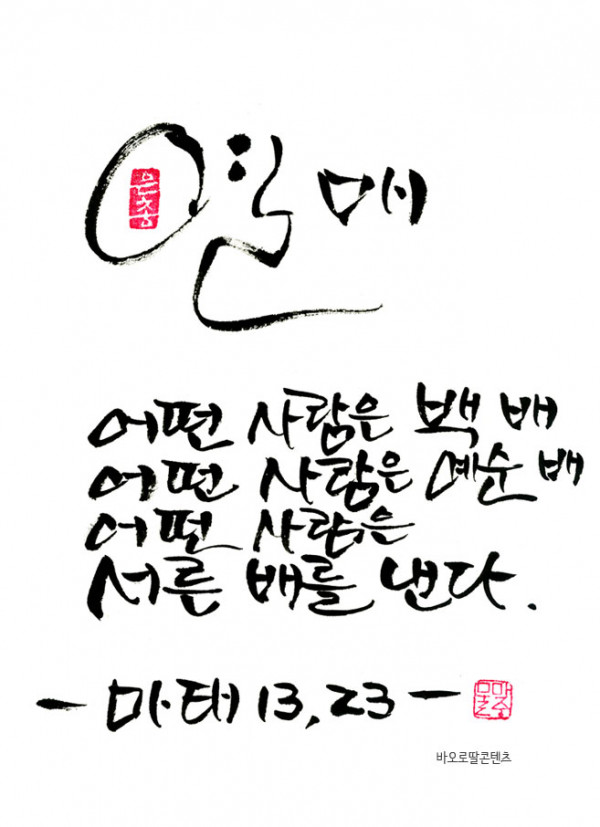 열매
은총
어떤 사람은 백 배
어떤 사람은 예순 배
어떤 사람은
서른 배를 낸다.
- 마태 13,23 -
바오로딸콘텐츠